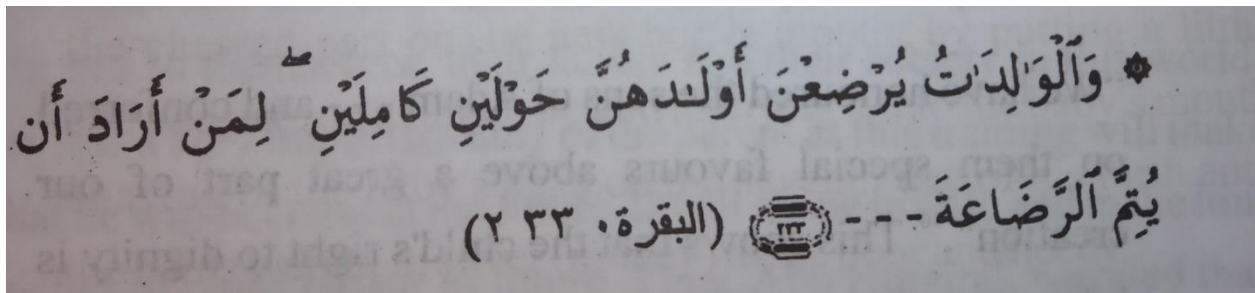 ۞ وَٱلْوَٰلِدَٰتُ يُرْضِعْنَ أَوْلَـٰدَهُنَّ حَوْلَيْنِ كَامِلَيْنِ ۖ لِمَنْ أَرَادَ أَن
يُتِمَّ ٱلرَّضَاعَةَ --- ﴿٢٣٣﴾ (البقرة، ٢٣٣)